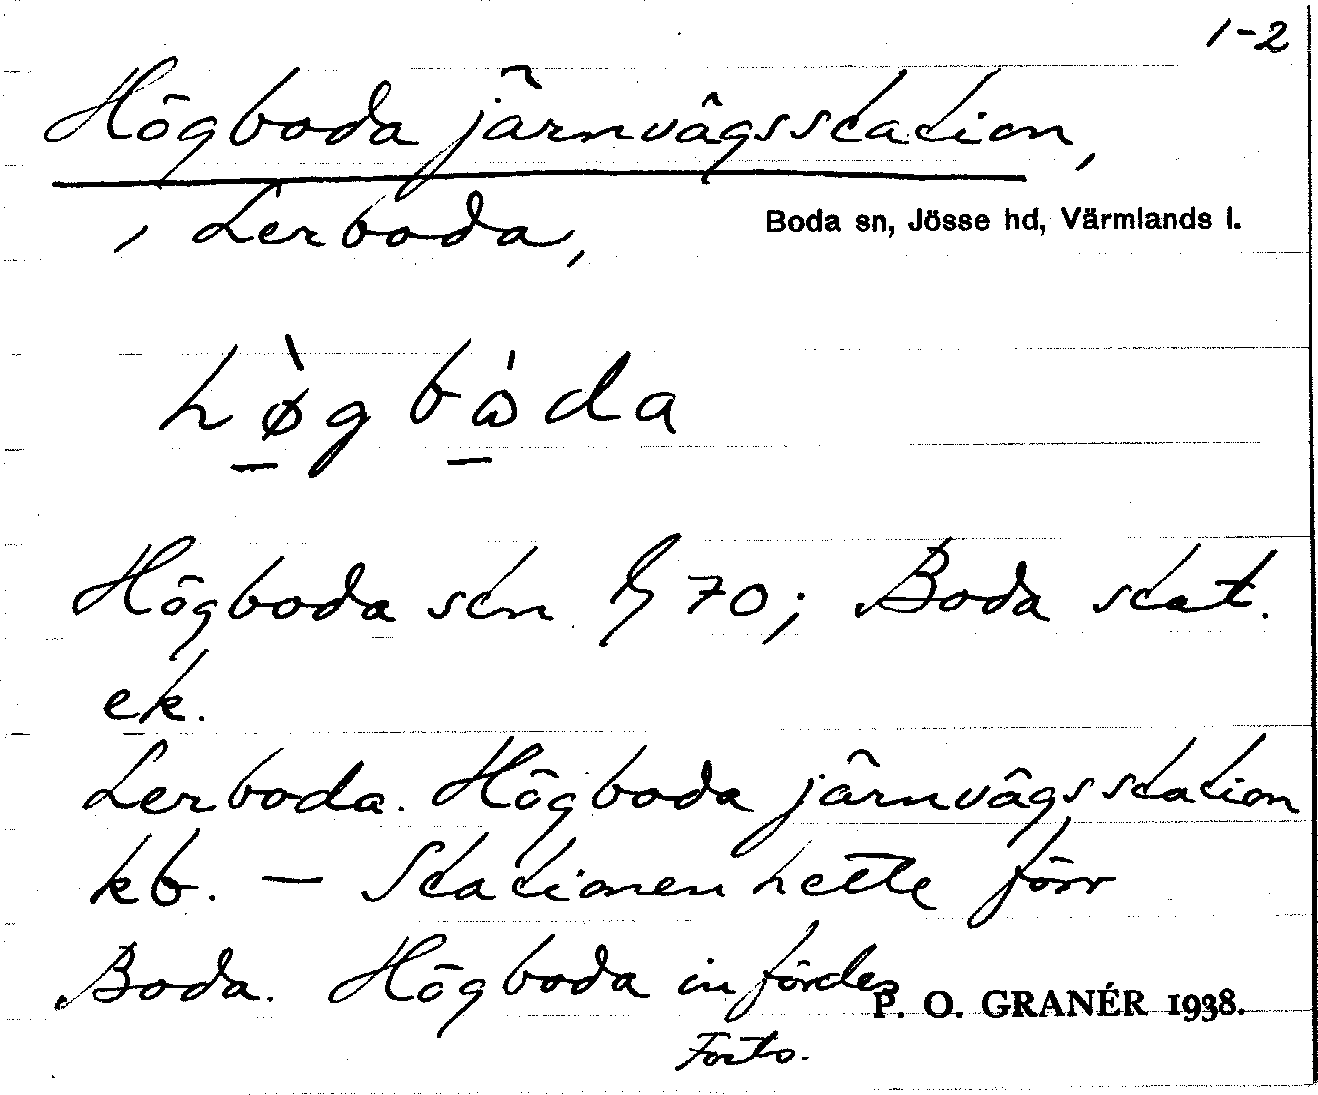 1-2
Högboda järnvägsstation,
, Lerboda,
Boda sn, Jösse hd, Värmlands l.
hø̀gbὼda
Högboda stn 70; Boda stat.
ek.
Lerboda. Högboda järnvägsstation
kb. – Stationen hette förr
Boda. Högboda infördes
P. O. GRANÉR 1938.
Forts.